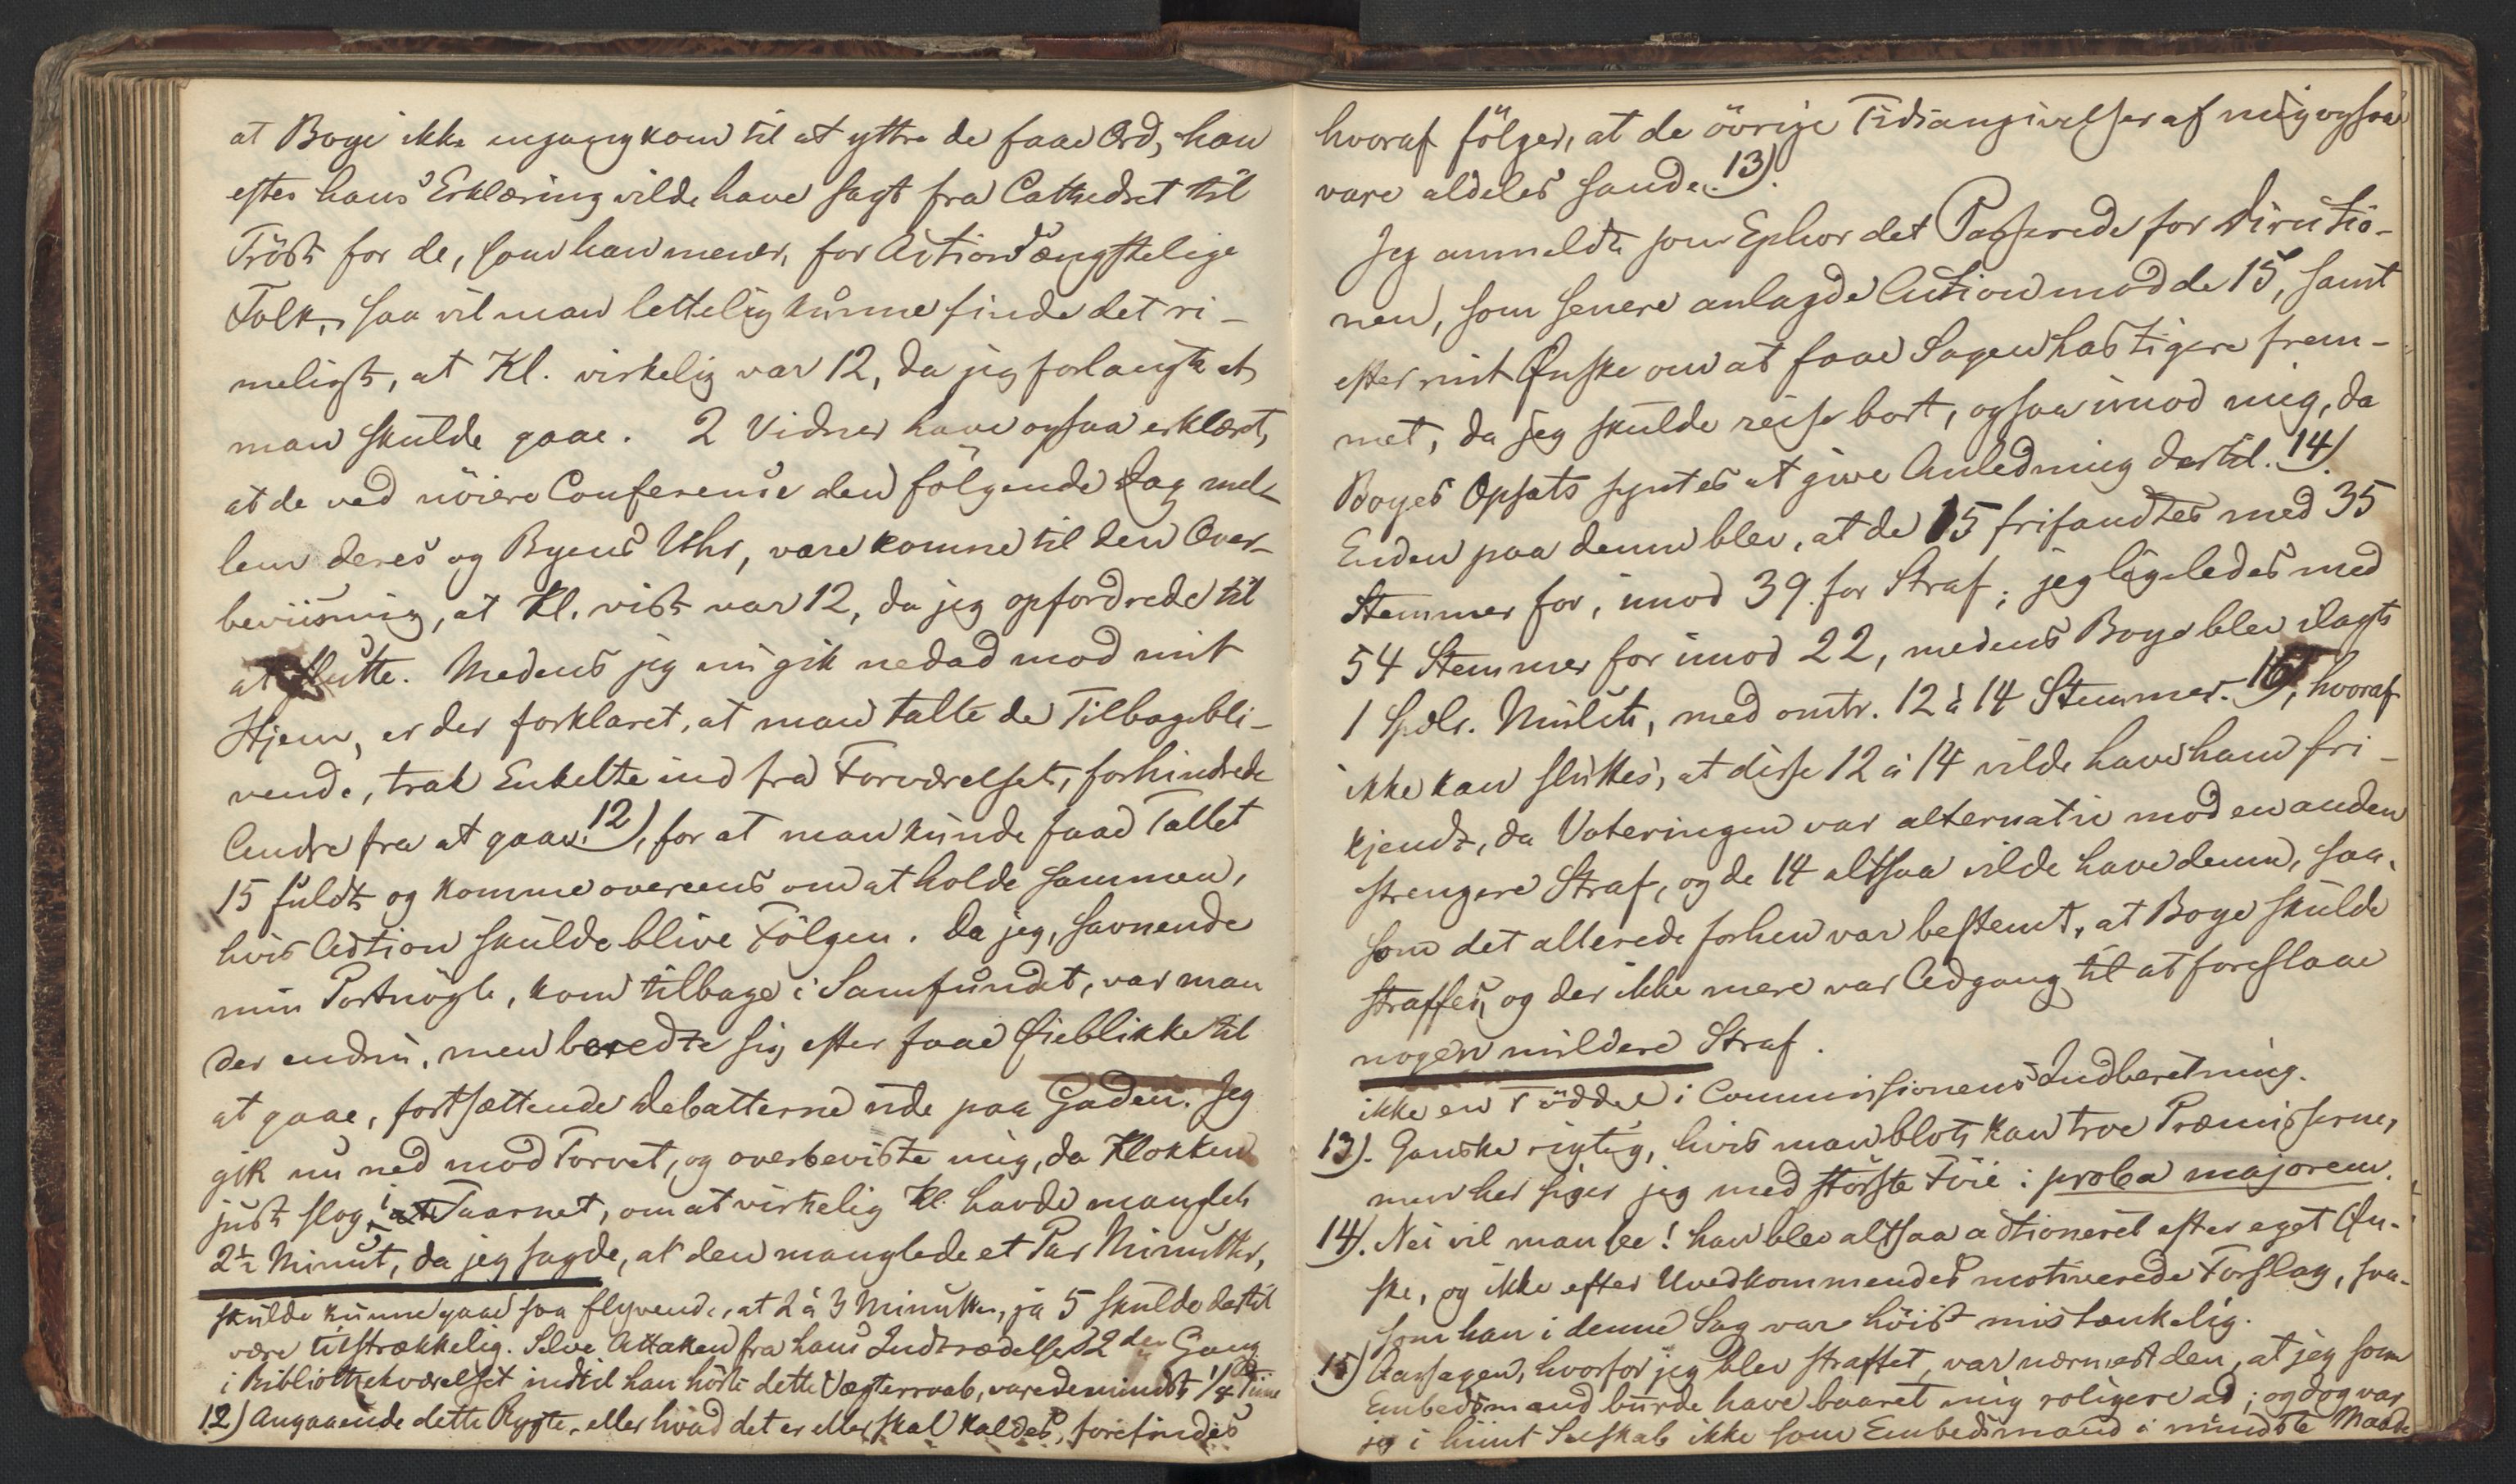 at Boye ikke engang kom til at yttre de faae Ord, han
efter hans Erklæring vilde have sagt fra Cathedret til
Tröst for de, som han mener, for Action ængstelige
Folk, saa vil man lettelig kunne finde det ri-
meligt, at Kl. virkelig var 12, da jeg forlangte at
man skulde gaae. 2 Vidner have ogsaa erklæret,
at de ved nöiere Conference den fölgende Dag mel-
lem deres og Byens Uhr, vare komne til den Over-
beviisning, at Kl. vist var 12, da jeg opfordrede til
at slutte. Medens jeg nu gik nedad mod mit
Hjem, er der forklaret, at man talte de Tilbagebli-
vende, trak Enkelte ind fra Forværelset, forhindrede
Andre fra at gaae 12), for at man kunde faae Tallet
15 fuldt og komme overeens om at holde sammen,
hvis Action skulde blive Fölgen. Da jeg, savnende
min Portnögle, kom tilbage i Samfundet, var man
der endnu, men beredte sig efter faae Øieblikke til
at gaae, fortsættende Debatterne ude paa Gaden. Jeg
gik nu ned mod Torvet, og overbeviste mig, da Klokken
just slog i Taarnet, om at virkelig Kl. havde manglet
2½ Minut, da jeg sagde, at den manglede et Par Minutter,
skulde kunne gaae saa flyvende, at 2 à 3 Minutter, ja 5 skulde dertil
være tilstrækkelig. Selve Attaken fra hans Indtrædelse 2den Gang
i Bibliothekværelset indtil han hörte dette Vægterraab, varede mindst 1/4 Time
12) Angaaende dette Rygte, eller hvad det er eller skal kaldes, forefindes
hvoraf fölger, at de övrige Tidsangivelser af mig ogsaa
vare aldeles sande. 13).
Jeg anmeldte som Ephor det Passerede for Directio-
nen, som senere anlagde Action mod de 15, samt
efter mit Ønske om at faae Sagen hastigere frem-
met, da jeg skulde reise bort, ogsaa imod mig, da
Boyes Opsats syntes at give Anledning dertil. 14).
Enden paa denne blev, at de 15 frifandtes med 35
Stemmer for, imod 39 for Straf; jeg ligeledes med
54 Stemmer for imod 22, medens Boye blev ilagt
1 Spdlr. Mulct, med omtr. 12 à 14 Stemmer. 15), hvoraf
ikke kan sluttes, at disse 12 à 14 vilde have ham fri-
kjendt, da Voteringen var alternativ mod en anden
strengere Straf, og de 14 altsaa vilde have denne, saa-
som det allerede forhen var bestemt, at Boye skulde
straffes, og der ikke mere var Adgang til at foreslaae
nogen mildere Straf.
ikke en Töddel i Commissionens Indberetning.
13). Ganske rigtig, hvis man blot kan troe Præmisserne,
men her siger jeg med störste Föie: proba majorem.
14). Nei vil man see! han blev altsaa actioneret efter eget Øn-
ske, og ikke efter Uvedkommendes motiverede Forslag, saa-
som han i denne Sag var höist mistænkelig.
15) Aarsagen, hvorfor jeg blev straffet, var nærmest den, at jeg som
Embedsmand burde have baaret mig roligere ad; og dog var
jeg i hiint Selskab ikke som Embedsmand i mindste Maade